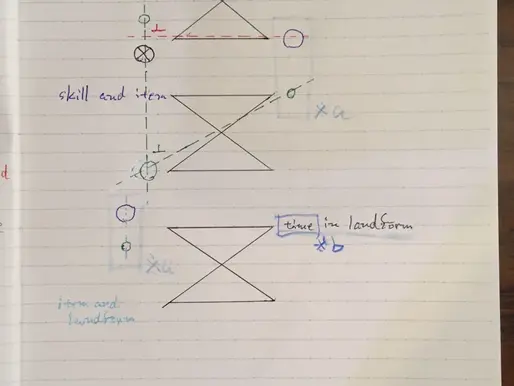 skill and item
※a
time in landform
※b
※a
item and
landform